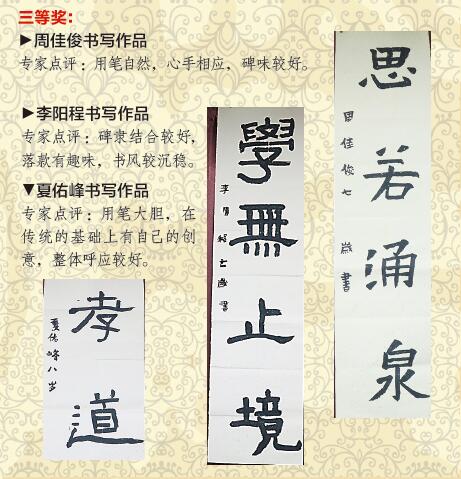 三等奖:
▶周佳俊书写作品
专家点评：用笔自然，心手相应，碑味较好。
▶李阳程书写作品
专家点评：碑隶结合较好，
落款有趣味，书风较沉稳。
▼夏佑峰书写作品
专家点评：用笔大胆，在
传统的基础上有自己的创
意，整体呼应较好。
思若涌泉
周佳俊七岁書
學無止境
李陽程七歲書
孝道
夏佑峰八岁